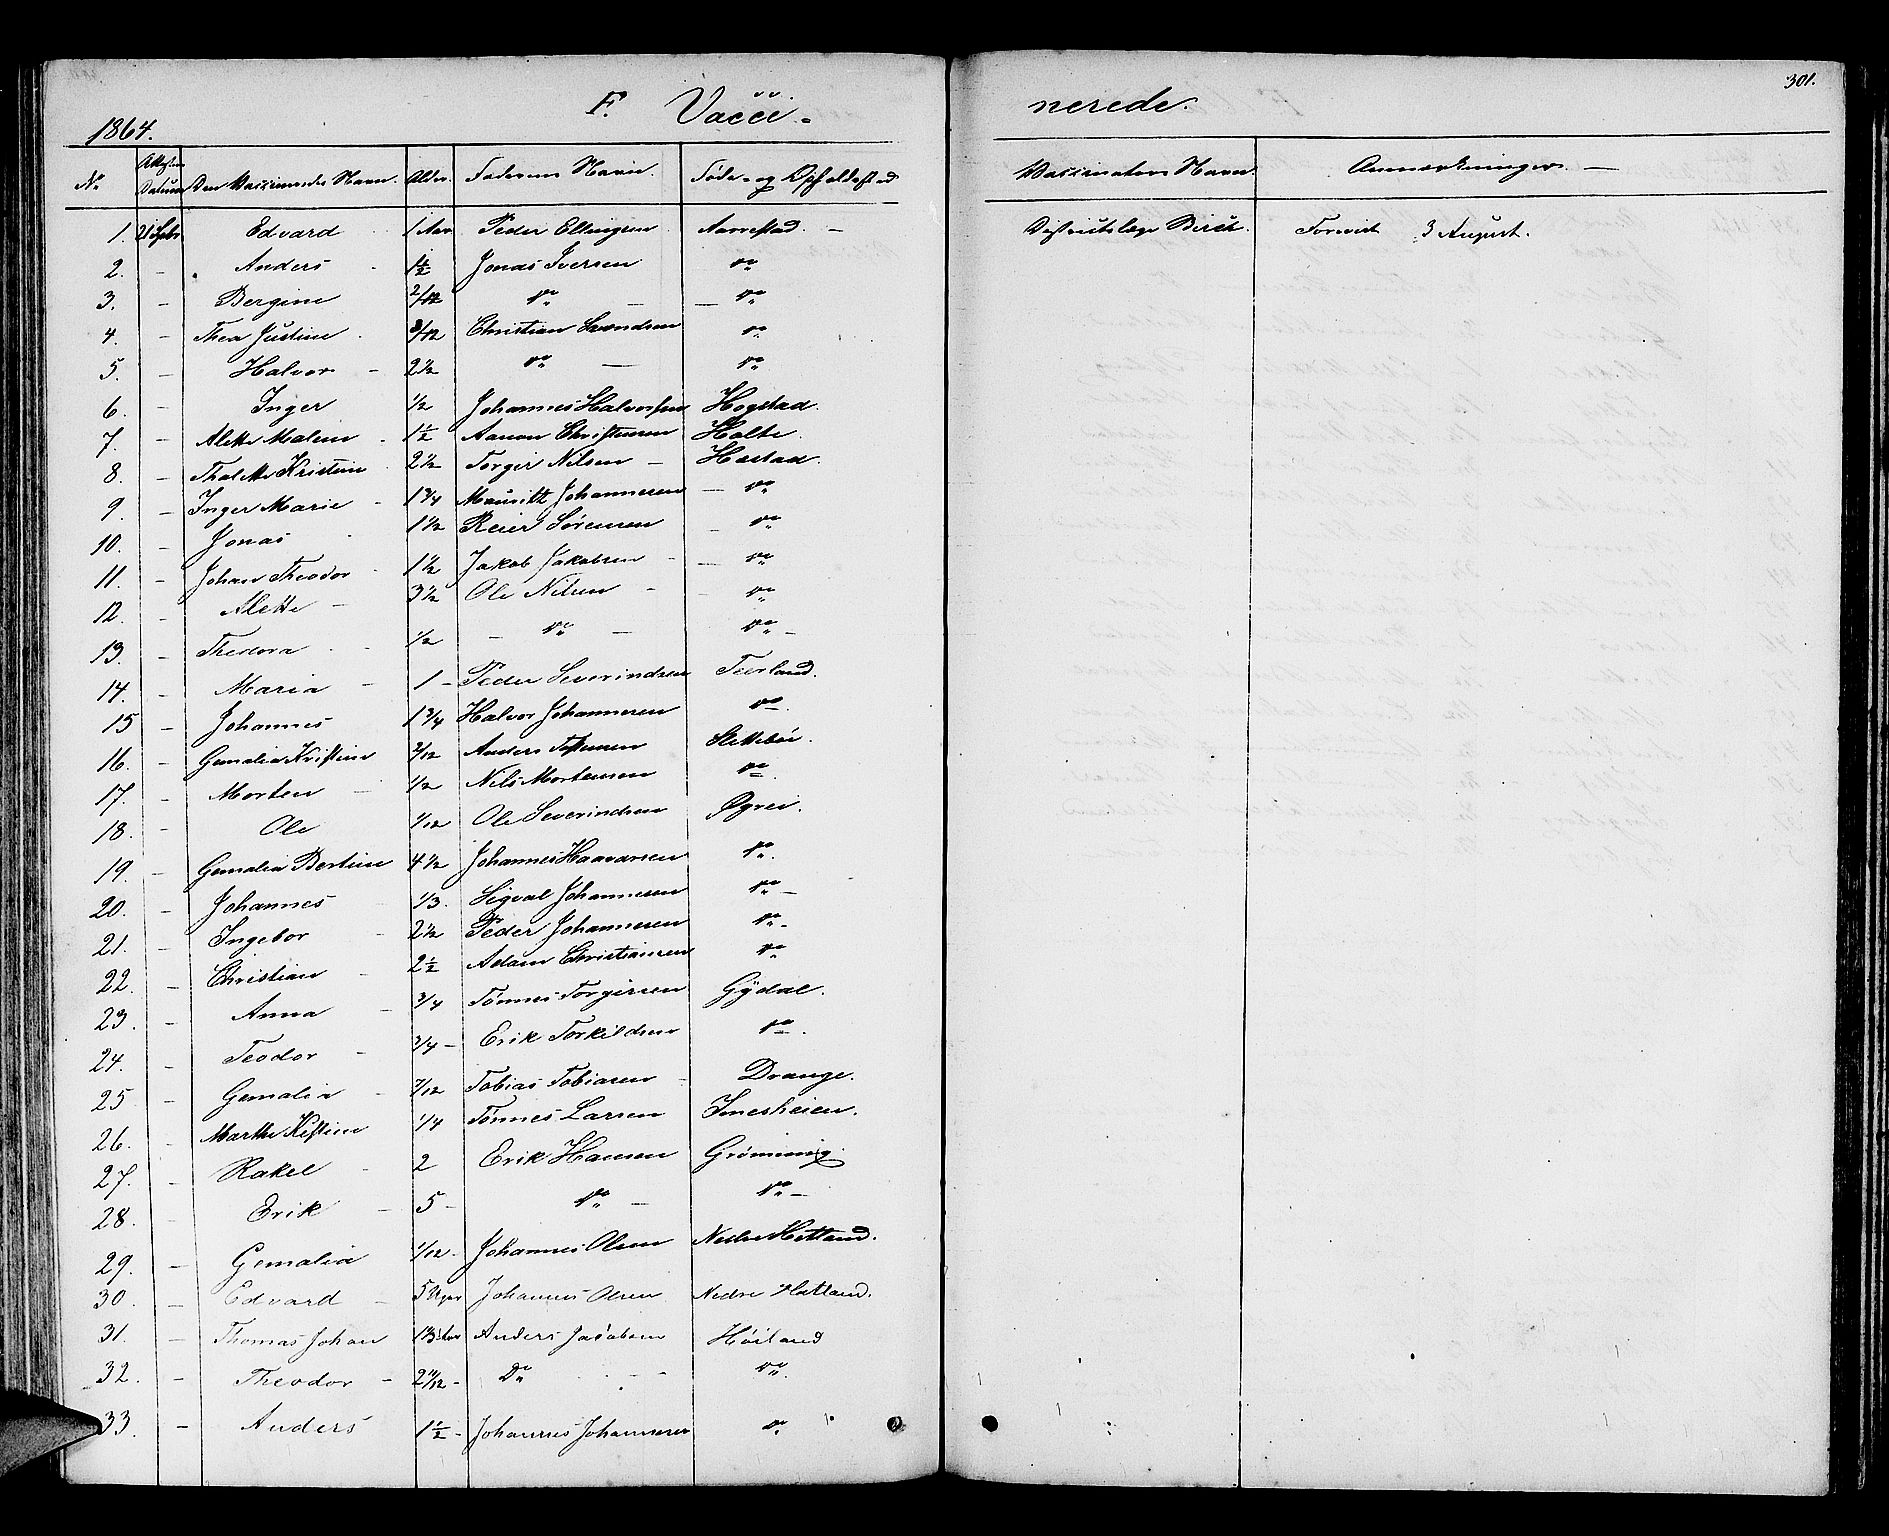 301.
F. Vacci- nerede.
1864.
No Attestens Datum Den Vaccineredes Navn. Alder. Faderens Navn. Føde- og Opholdssted Vaccinators Navn Anmærkninger.
1. Edvard 1 Aar Peder Ellingsen Aarrestad. Districtslæge Forevist 3 August.
2. - Anders 1 1/2 Jonas Iversen Do
3. - Bergine 2/12 Do Do
4. - Thea Justine 8/12 Christian Svendsen Do
5. - Halvor 2 1/2 Do Do
6. - Inger 1/2 Johannes Halvorsen Hogstad.
7. - Alette Malene 1 1/2 Aanon Christensen Holte.
8. - Thalette Kristine 2 1/2 Torger Nilsen Hæstad.
9. - Inger Marie 1 3/4 Mauritz Johannesen Do
10. - Jonas 1 1/2 Reier Sørensen Do
11. - Johan Theodor 1 1/2 Jakob Jakobsen Do
12. - Alette 3 1/2 Ole Nilsen Do
13. - Theodora 1/2 Do Do
14. - Maria 1 - Peder Severindsen Teerland.
15 - Johannes 1 3/4 Halvor Johannesen Do.
16. - Gemalia Kristine 2/12 Anders Slettebøe.
17. - Morten 1/2 Nils Mortensen Do
18. - Ole 1/12 Ole Severindsen Øgrei.
19. - Gemalia Bertine 4 1/2 Johannes Haavarsen Do.
20. - Johannes 1/3. Sigval Johannesen Do
21. - Ingebor 2 1/2 Peder Johannesen Do
22. - Christian 2 1/2 Adam Christiansen Do
23. - Anna 3/4 Tønnes Torgersen Gÿdal.
24. - Teodor 3/4 - Erik Torkildsen Do.
25 - Gemalia 7/12 Tobias Tobiasen Drange.
26. - Marthe Kistine 1/4 Tønnes Larsen Imesheien.
27. - Rakel 2 Erik Hansen Grømming.
28. - Erik 5 - Do Do
29. - Gemalia 1/12 - Johannes Olsen Nedre Hetland.
30. - Edvard 5 Uger Johannes Olsen Nedre Hetland.
31. - Thomas Johan Anders Jacobsen Høiland
32. - Theodor 2 11/12 - Do Do.
33. - Anders 1 1/2 - Johannes Johannesen Do